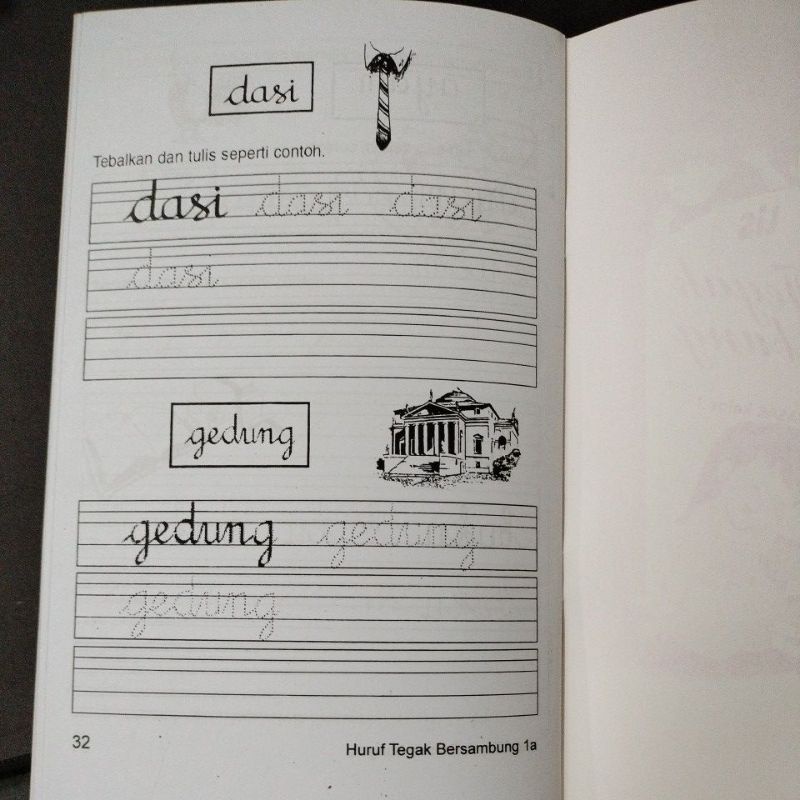 dasi
Tebalkan dan tulis seperti contoh.
dasi dasi dasi
dasi
gedung
gedung gedung
gedung
32 Huruf Tegak Bersambung 1a